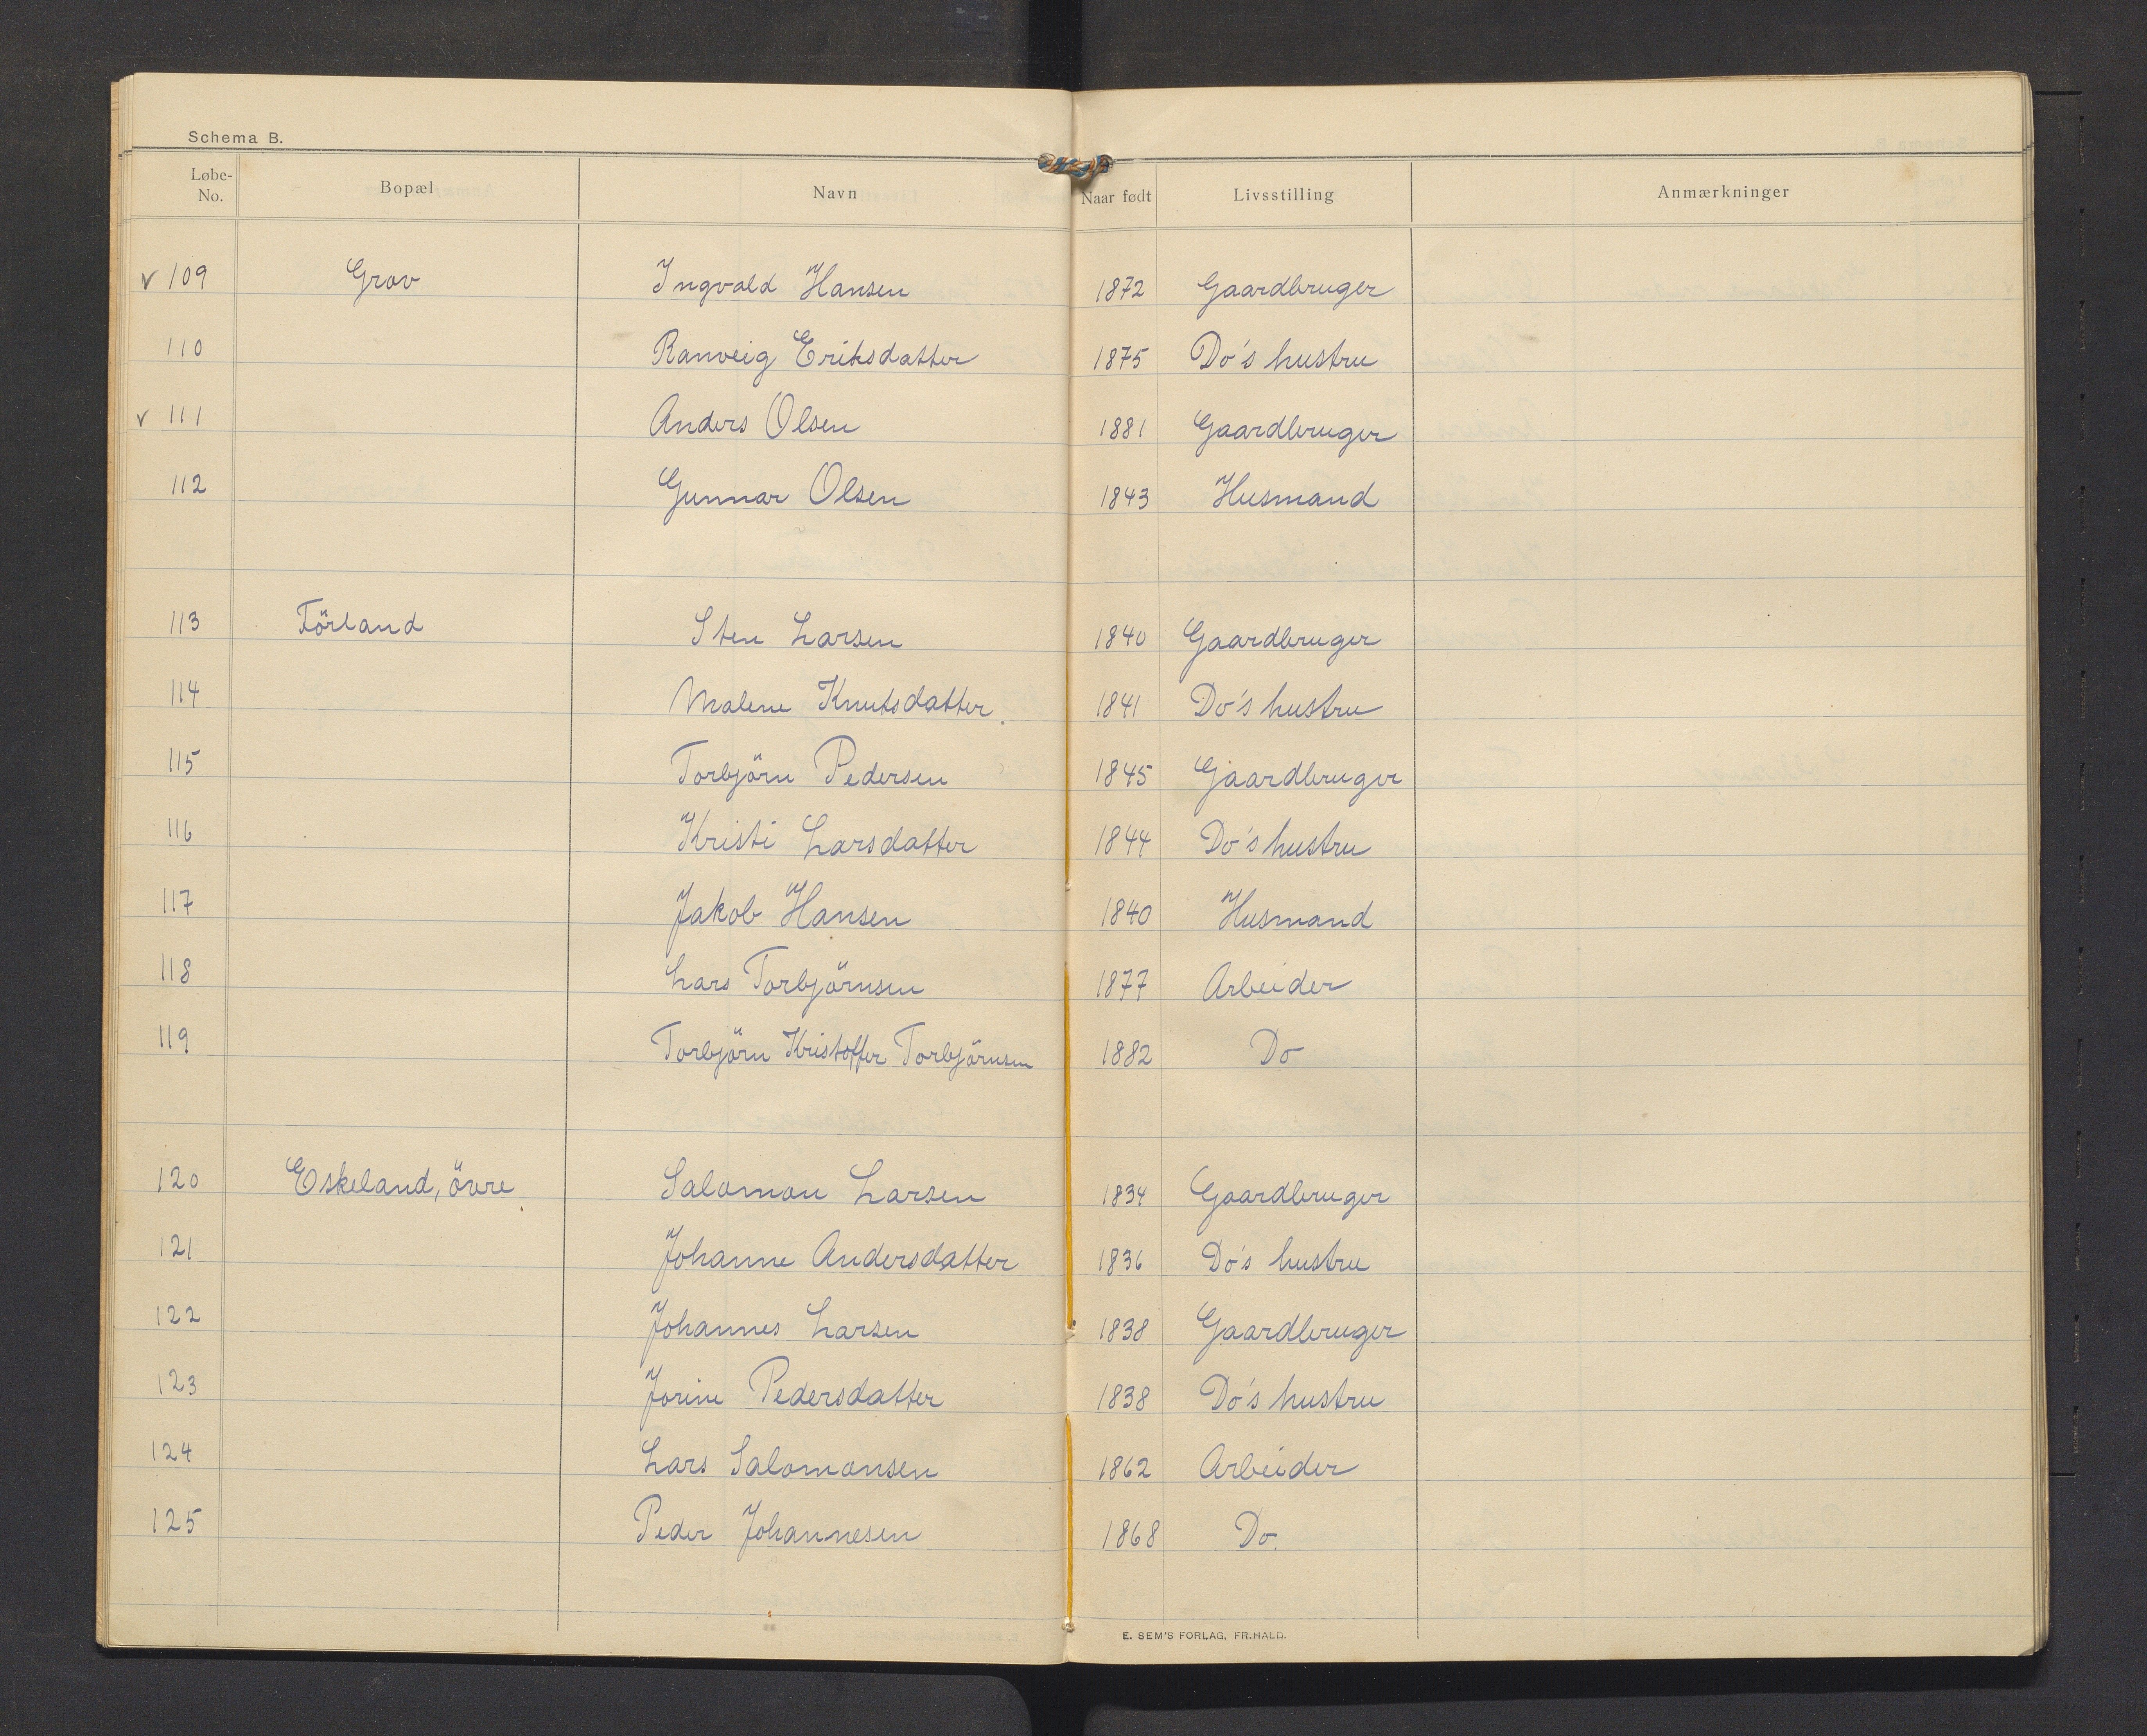 Schema B.
Løbe-No. Bopæl Navn Naar født Livsstilling Anmærkninger
v 109 Grov Ingvald Hansen 1872 Gaardbruger
110 Ranveig Eriksdatter 1875 Do's hustru
v 111 Anders Olsen 1881 Gaardbruger
112 Gunnar Olsen 1843 Husmand
113 Förland Sten Larsen 1840 Gaardbruger
114 Malene Knutsdatter. 1841 Do's hustru
115 Torbjörn Pedersen 1845 Gaardbruger
116 Kristi Larsdatter 1844 Do's hustru
117 Jakob Hansen 1840 Husmand
118 Lars Torbjörnsen 1877 Arbeider
119 Torbjörn Kristoffer Torbjörnsen 1882 Do
120 Eskeland, övre. Salomon Larsen 1834 Gaardbruger
121 Johanne Andersdatter 1836 Do's hustru
122 Johannes Larsen 1838 Gaardbruger
123 Jorine Pedersdatter 1838 Do's hustru
124 Lars Salomonsen 1862 Arbeider
125 Peder Johannesen 1868 Do.
E. SEM'S FORLAG, FR.HALD.